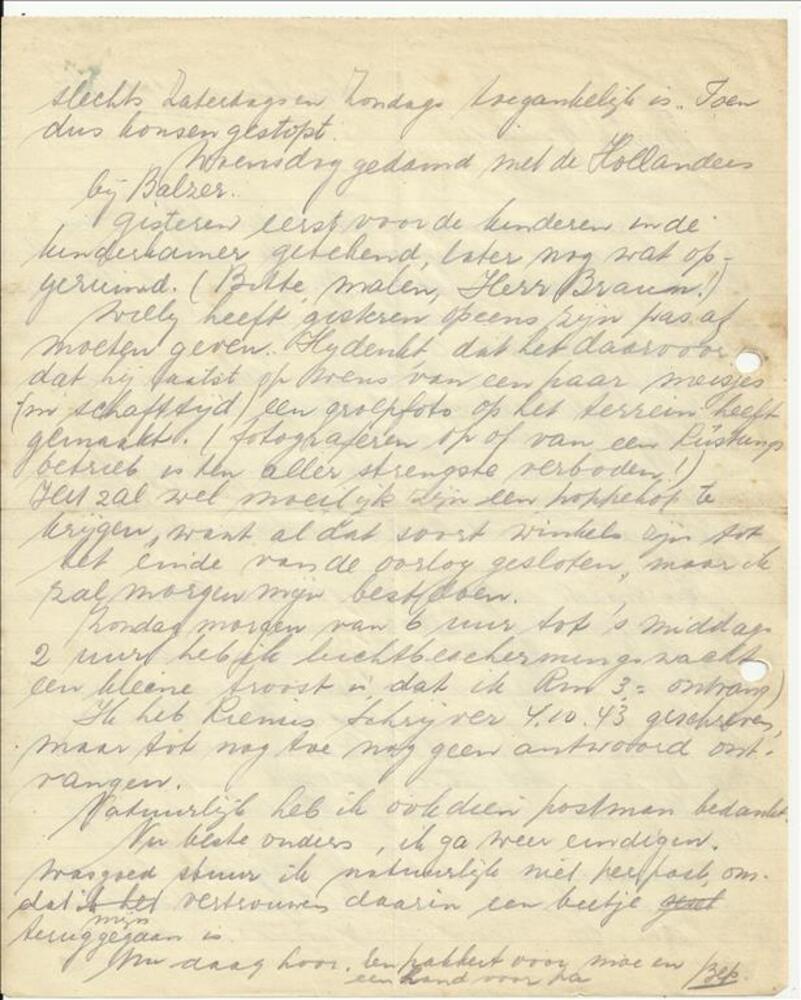 slechts Zaterdags en Zondags toegankelijk is. Toen
dus kousen gestopt.
Woensdag gedamd met de Hollanders
bij Balzer.
Gisteren eerst voor de kinderen in de
kinderkamer getekend, later nog wat op-
geruimd. (Bitte, malen, Herr Braun!)
Willy heeft gisteren opeens zijn pas af
moeten geven. Hij denkt dat het daarvoor is
dat hij laatst op wens van een paar meisjes
(in schafttijd) een groepfoto op het terrein heeft
gemaakt. (fotograferen op of van een Rüstungs
betrieb is ten aller strengste verboden!)
Het zal wel moeilijk zijn een poppekop te
krijgen, want al dat soort winkels zijn tot
het einde van de oorlog gesloten, maar ik
zal morgen mijn best doen.
Zondag morgen van 6 uur tot 's middags
2 uur heb ik luchtbeschermingswacht
een kleine troost is, dat ik Rm 3.= ontvang)
Ik heb Schrijver 4.10.43 geschreven,
maar tot nog toe nog geen antwoord ont-
vangen.
Natuurlijk heb ik ook dien postman bedankt.
Nu beste ouders, ik ga weer eindigen.
Wasgoed stuur ik natuurlijk niet per post, om-
dat het vertrouwen daarin een beetje
mijn
teruggegaan is.
Nu daag hoor, een pakkert voor moe en
een hand voor pa
Bep.